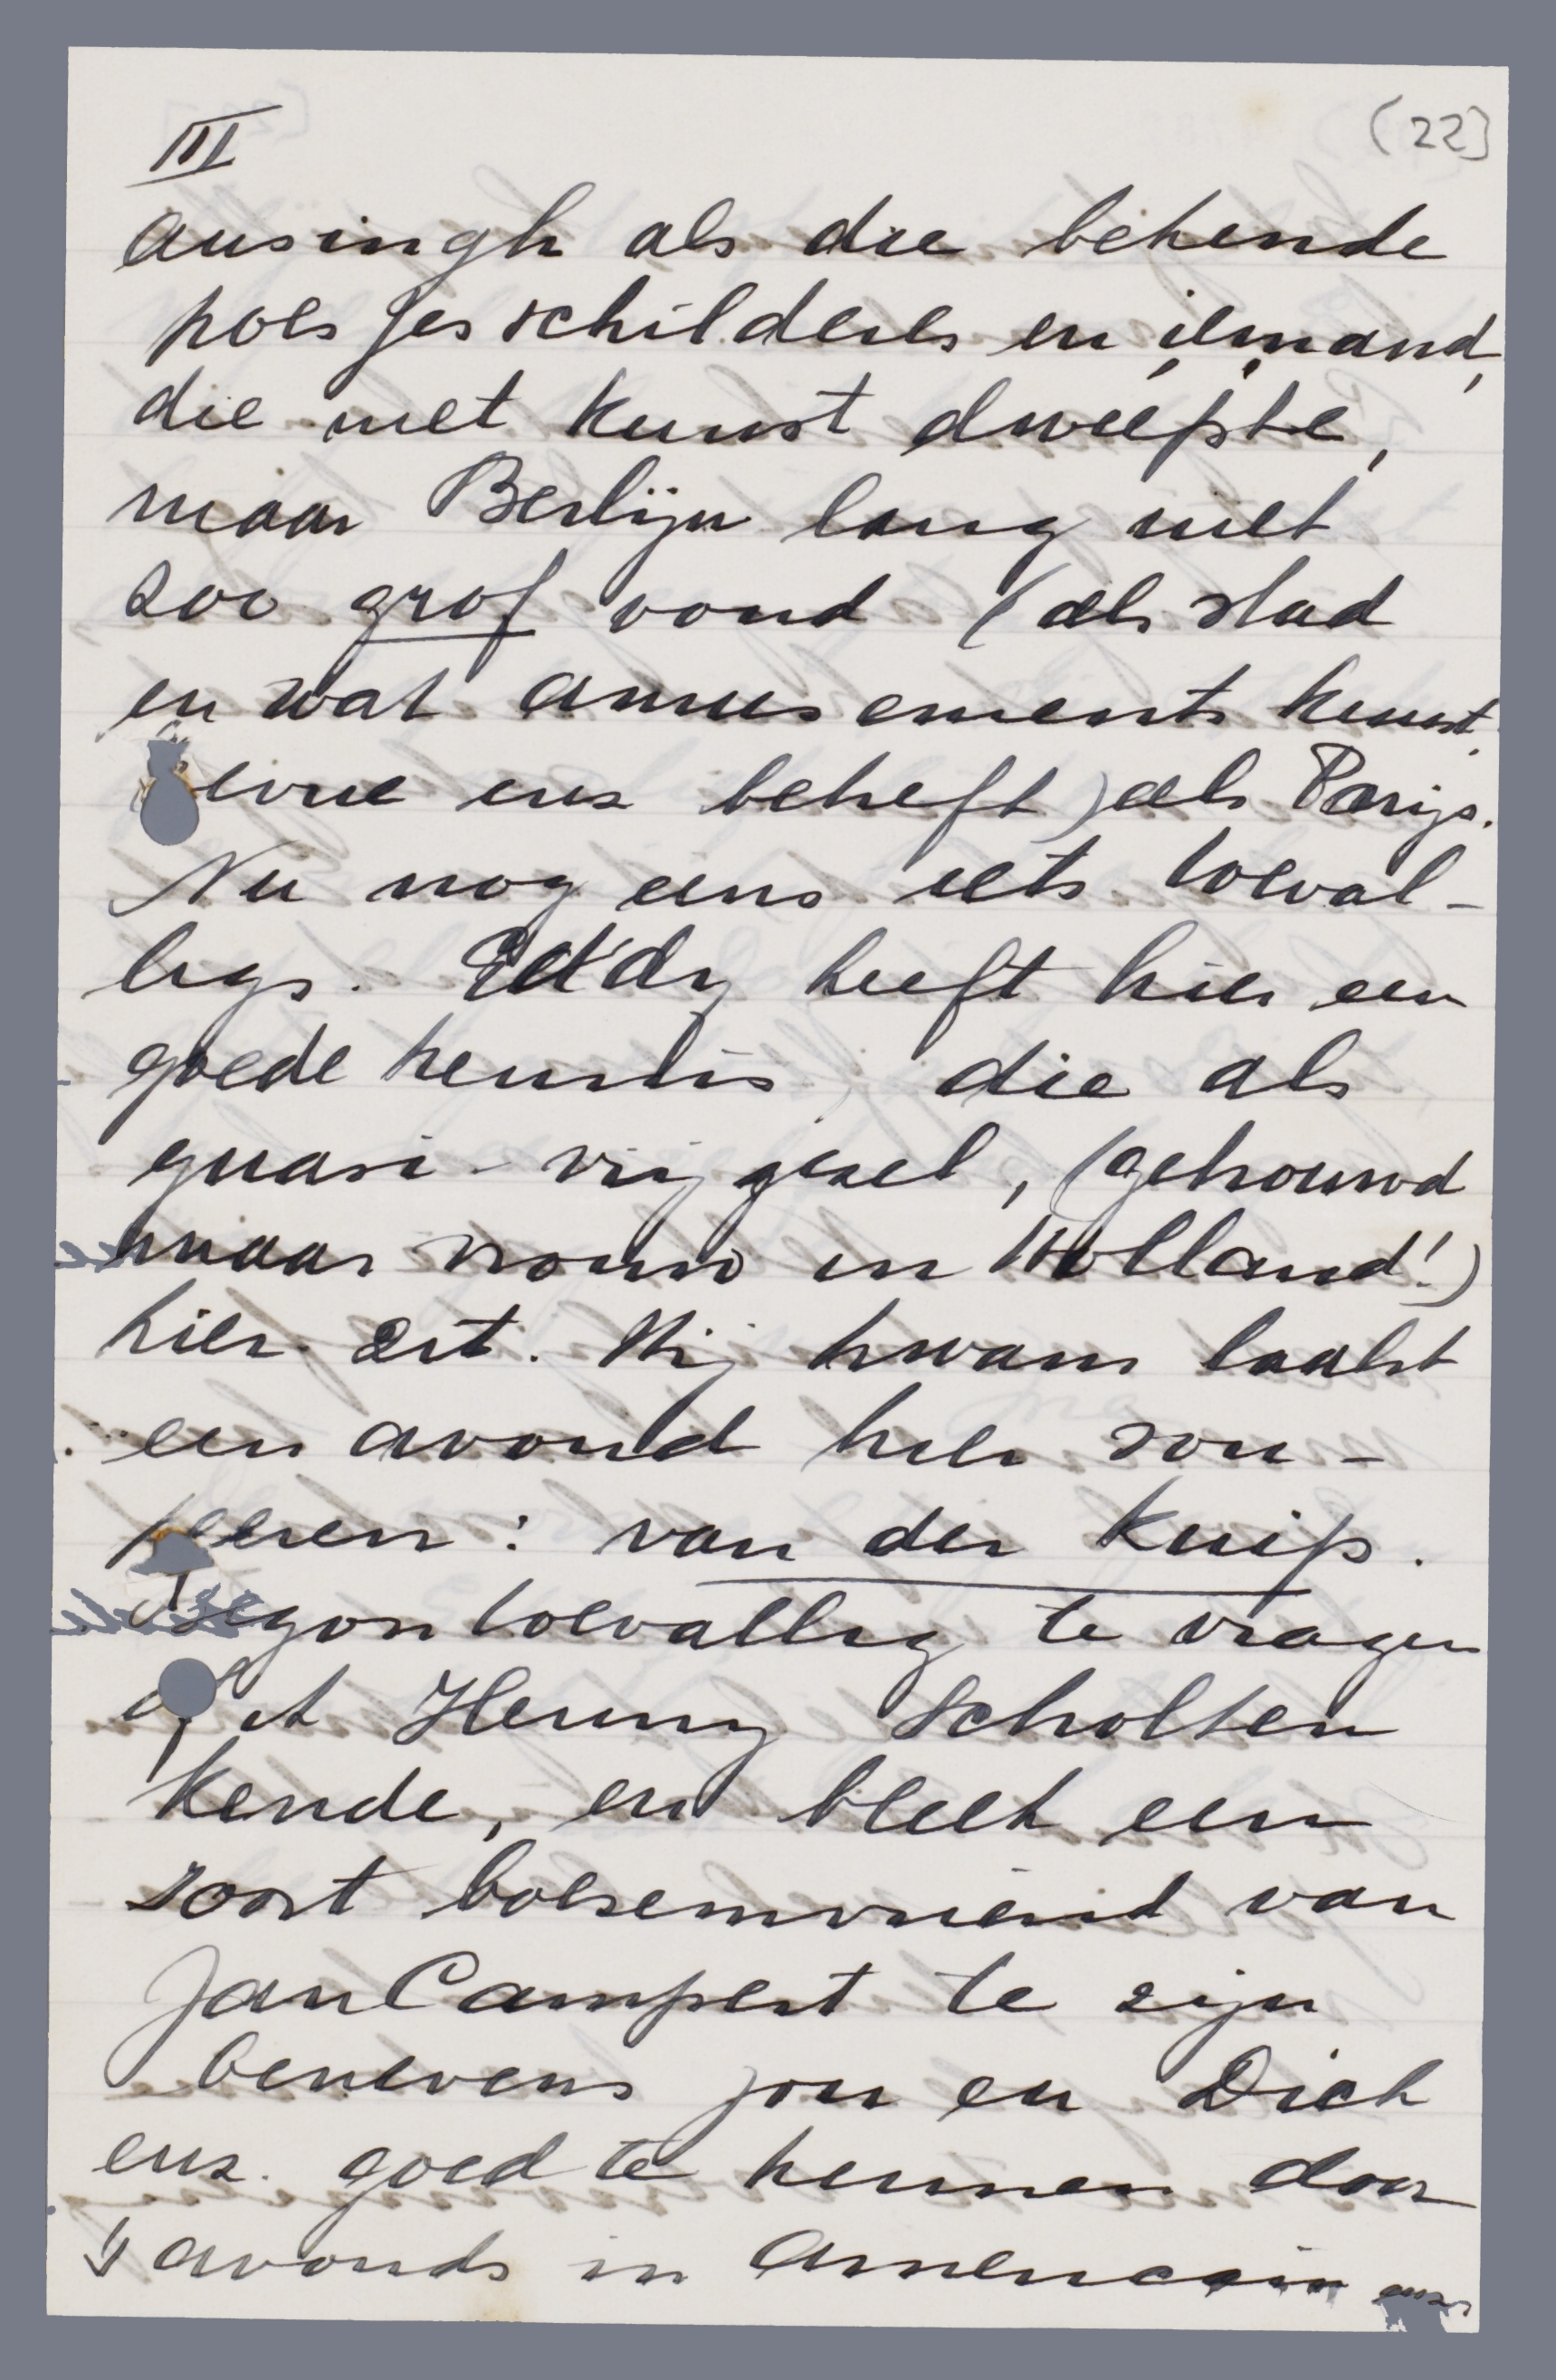 III
(22]
ausingh als die bekende
poesjesschilderes en iemand,
die met kunst dweepte,
maar Berlijn lang niet
zoo grof vond (als stad
en wat amusements kunst,
revue enz betreft) als Parijs.
Nu nog eens iets toeval-
ligs. Eddy heeft hier een
goede kennis, die als
quasi-vrijgezel, (getrouwd
maar vrouw in Holland!)
hier zit. Hij kwam laatst
een avond hier sou-
peeren: van der Kuip.
begon toevallig te vragen
of it Henny Scholten
kende, en bleek een
soort boezemvriend van
Jan Campert te zijn
benevens jou en Dick
enz. goed te kennen door
's avonds in Americain enz